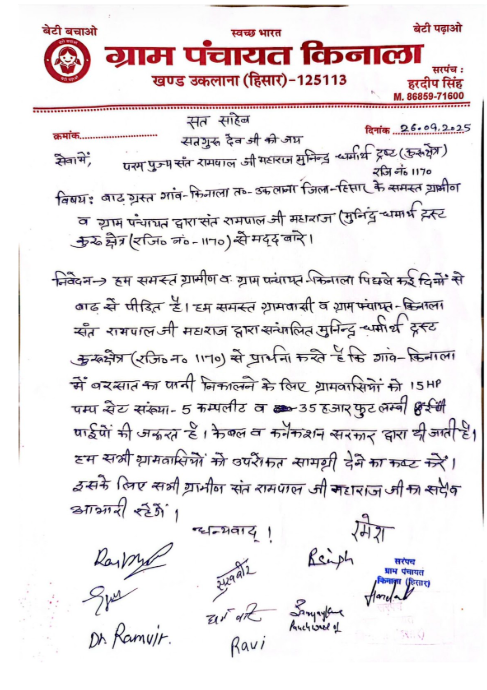 बेटी बचाओ
स्वच्छ भारत
बेटी पढ़ाओ
ग्राम पंचायत किनाला
खण्ड उकलाना (हिसार)-125113
सरपंच :
हरदीप सिंह
M. 86859-71600
सत साहेब
क्रमांक
दिनांक 26.09.2025
सतगुरु देव जी की जय
सेवा में,
परम पुज्य संत रामपाल जी महाराज मुनिन्द्र धर्मार्थ ट्रष्ट (कुरूक्षेत्र)
रजि नं० 1170
विषय: बाढ़ ग्रस्त गांव-किनाला त०-उकलाना जिला-हिसार के समस्त ग्रामीण
व ग्राम पंचायत द्वारा संत रामपाल जी महाराज (मुनिंद्र धर्मार्थ ट्रस्ट
कुरूक्षेत्र (रजि० नं०-1170) से मद्द बारे।
निवेदन→ हम समस्त ग्रामीण व ग्राम पंचायत-किनाला पिछले कई दिनों से
बाढ़ से पीडित है। हम समस्त ग्रामवासी व ग्राम पंचायत-किनाला
संत रामपाल जी महाराज द्वारा सन्चालित मुनिन्द्र धर्मार्थ ट्रस्ट
कुरूक्षेत्र (रजि० न० 1170) से प्रार्थना करते है कि गांव-किनाला
में बरसात का पानी निकालने के लिए ग्रामवासियों को 15HP
पम्प सेट संख्या-5 कम्पलीट व 35 हजार फुट लम्बी 8ईन्ची
पाईपों की जरूरत है। केबल व कनैकशन सरकार द्वारा दी जाती है।
हम सभी ग्रामवासियों को उपरोक्त सामग्री देने का कष्ट करें।
इसके लिए सभी ग्रामीण संत रामपाल जी महाराज जी का सदैव
आभारी रहेगें।
धन्यवाद!
रमेश
सुखबीर
सरपंच
ग्राम पंचायत
किनाला (हिसार)
Dr. Ramvir.
Ravi